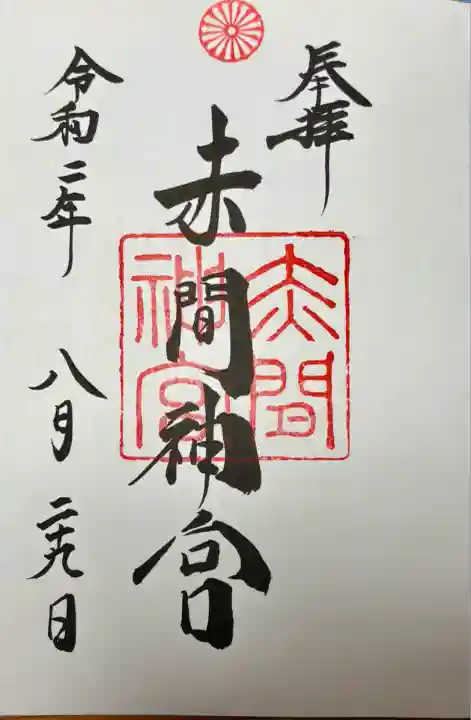 奉拝
赤間神宮
赤間
神宮
令和二年 八月 二十九日